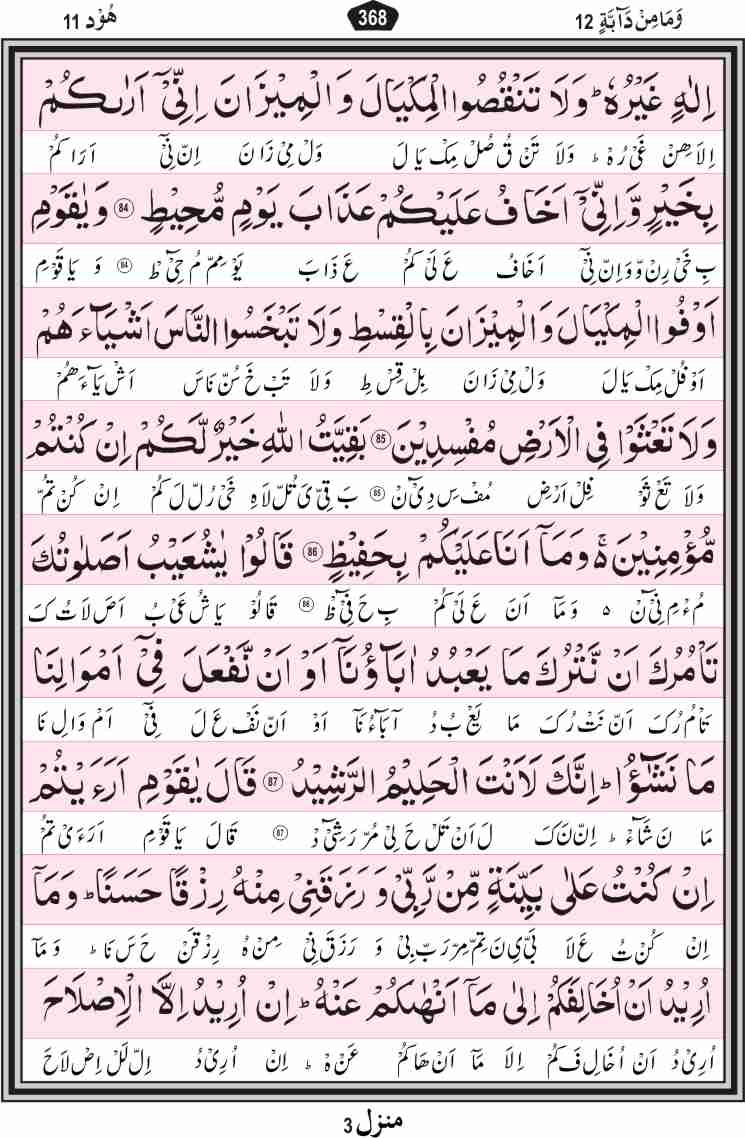 وَمَا مِنْ دَآبَّةٍ 12
368
هُوْد 11
اِلٰهٍ غَيْرُهٗ ؕ وَلَا تَنْقُصُوا الْمِكْيَالَ وَالْمِيْزَانَ اِنِّىْۤ اَرٰىكُمْ
اِلَاهِنْ غَىْ رُهٗ ؕ وَلَا تَنْ قُ صُلْ مِكْ يَا لَ وَلْ مِىْ زَا نَ اِنْ نِىْٓ اَرَا كُمْ
بِخَيْرٍ وَّاِنِّىْۤ اَخَافُ عَلَيْكُمْ عَذَابَ يَوْمٍ مُّحِيْطٍ ﴿84﴾ وَيٰقَوْمِ
بِ خَىْ رِنْ وَّ وَاِنْ نِىْٓ اَخَافُ عَ لَىْ كُمْ عَ ذَابَ يَوْ مِمْ مُ حِىْٓ طْ ﴿84﴾ وَ يَا قَوْمِ
اَوْفُوا الْمِكْيَالَ وَالْمِيْزَانَ بِالْقِسْطِ وَلَا تَبْخَسُوا النَّاسَ اَشْيَآءَهُمْ
اَوْ فُلْ مِكْ يَا لَ وَلْ مِىْ زَا نَ بِلْ قِسْ طِ وَلَا تَبْ خَ سُنْ نَاسَ اَشْ يَآءَ هُمْ
وَلَا تَعْثَوْا فِى الْاَرْضِ مُفْسِدِيْنَ ﴿85﴾ بَقِيَّتُ اللّٰهِ خَيْرٌ لَّكُمْ اِنْ كُنْتُمْ
وَلَا تَعْ ثَوْ فِلْ اَرْضِ مُفْ سِ دِىْٓ نْ ﴿85﴾ بَ قِىْ ىَ تُلْ لَاهِ خَىْ رُلْ لَ كُمْ اِنْ كُنْ تُمْ
مُّؤْمِنِيْنَ ۚ۬ وَمَاۤ اَنَا عَلَيْكُمْ بِحَفِيْظٍ ﴿86﴾ قَالُوْا يٰشُعَيْبُ اَصَلٰوتُكَ
مُ ءْ مِ نِىْٓ نْ ۵ وَ مَآ اَنَ عَ لَىْ كُمْ بِ حَ فِىْٓ ظْ ﴿86﴾ قَا لُوْ يَا شُ عَىْ بُ اَصَ لَا تُ كَ
تَاْمُرُكَ اَنْ نَّتْرُكَ مَا يَعْبُدُ اٰبَآؤُنَاۤ اَوْ اَنْ نَّفْعَلَ فِىْۤ اَمْوَالِنَا
تَاْ مُ رُ كَ اَنْ نَتْ رُ كَ مَا يَعْ بُ دُ آبَآءُ نَآ اَوْ اَنْ نَفْ عَ لَ فِىْٓ اَمْ وَالِ نَا
مَا نَشٰٓؤُا ؕ اِنَّكَ لَاَنْتَ الْحَلِيْمُ الرَّشِيْدُ ﴿87﴾ قَالَ يٰقَوْمِ اَرَءَيْتُمْ
مَا نَ شَآءْ ؕ اِنْ نَ كَ لَ اَنْ تَلْ حَ لِىْ مُرْ رَشِىْٓ دْ ﴿87﴾ قَا لَ يَا قَوْمِ اَرَءَىْ تُمْ
اِنْ كُنْتُ عَلٰى بَيِّنَةٍ مِّنْ رَّبِّىْ وَرَزَقَنِىْ مِنْهُ رِزْقًا حَسَنًا ؕ وَمَاۤ
اِنْ كُنْ تُ عَ لَا بَىْ ىِ نَ تِمْ مِرْ رَبْ بِىْ وَ رَزَقَ نِىْ مِنْ هُ رِزْ قَنْ حَ سَ نَا ؕ وَ مَآ
اُرِيْدُ اَنْ اُخَالِفَكُمْ اِلٰى مَاۤ اَنْهٰىكُمْ عَنْهُ ؕ اِنْ اُرِيْدُ اِلَّا الْاِصْلَاحَ
اُرِىْ دُ اَنْ اُ خَالِ فَ كُمْ اِلَا مَآ اَنْ هَا كُمْ عَنْ هْ ؕ اِنْ اُرِىْ دُ اِلْ لَلْ اِصْ لَا حَ
منزل 3